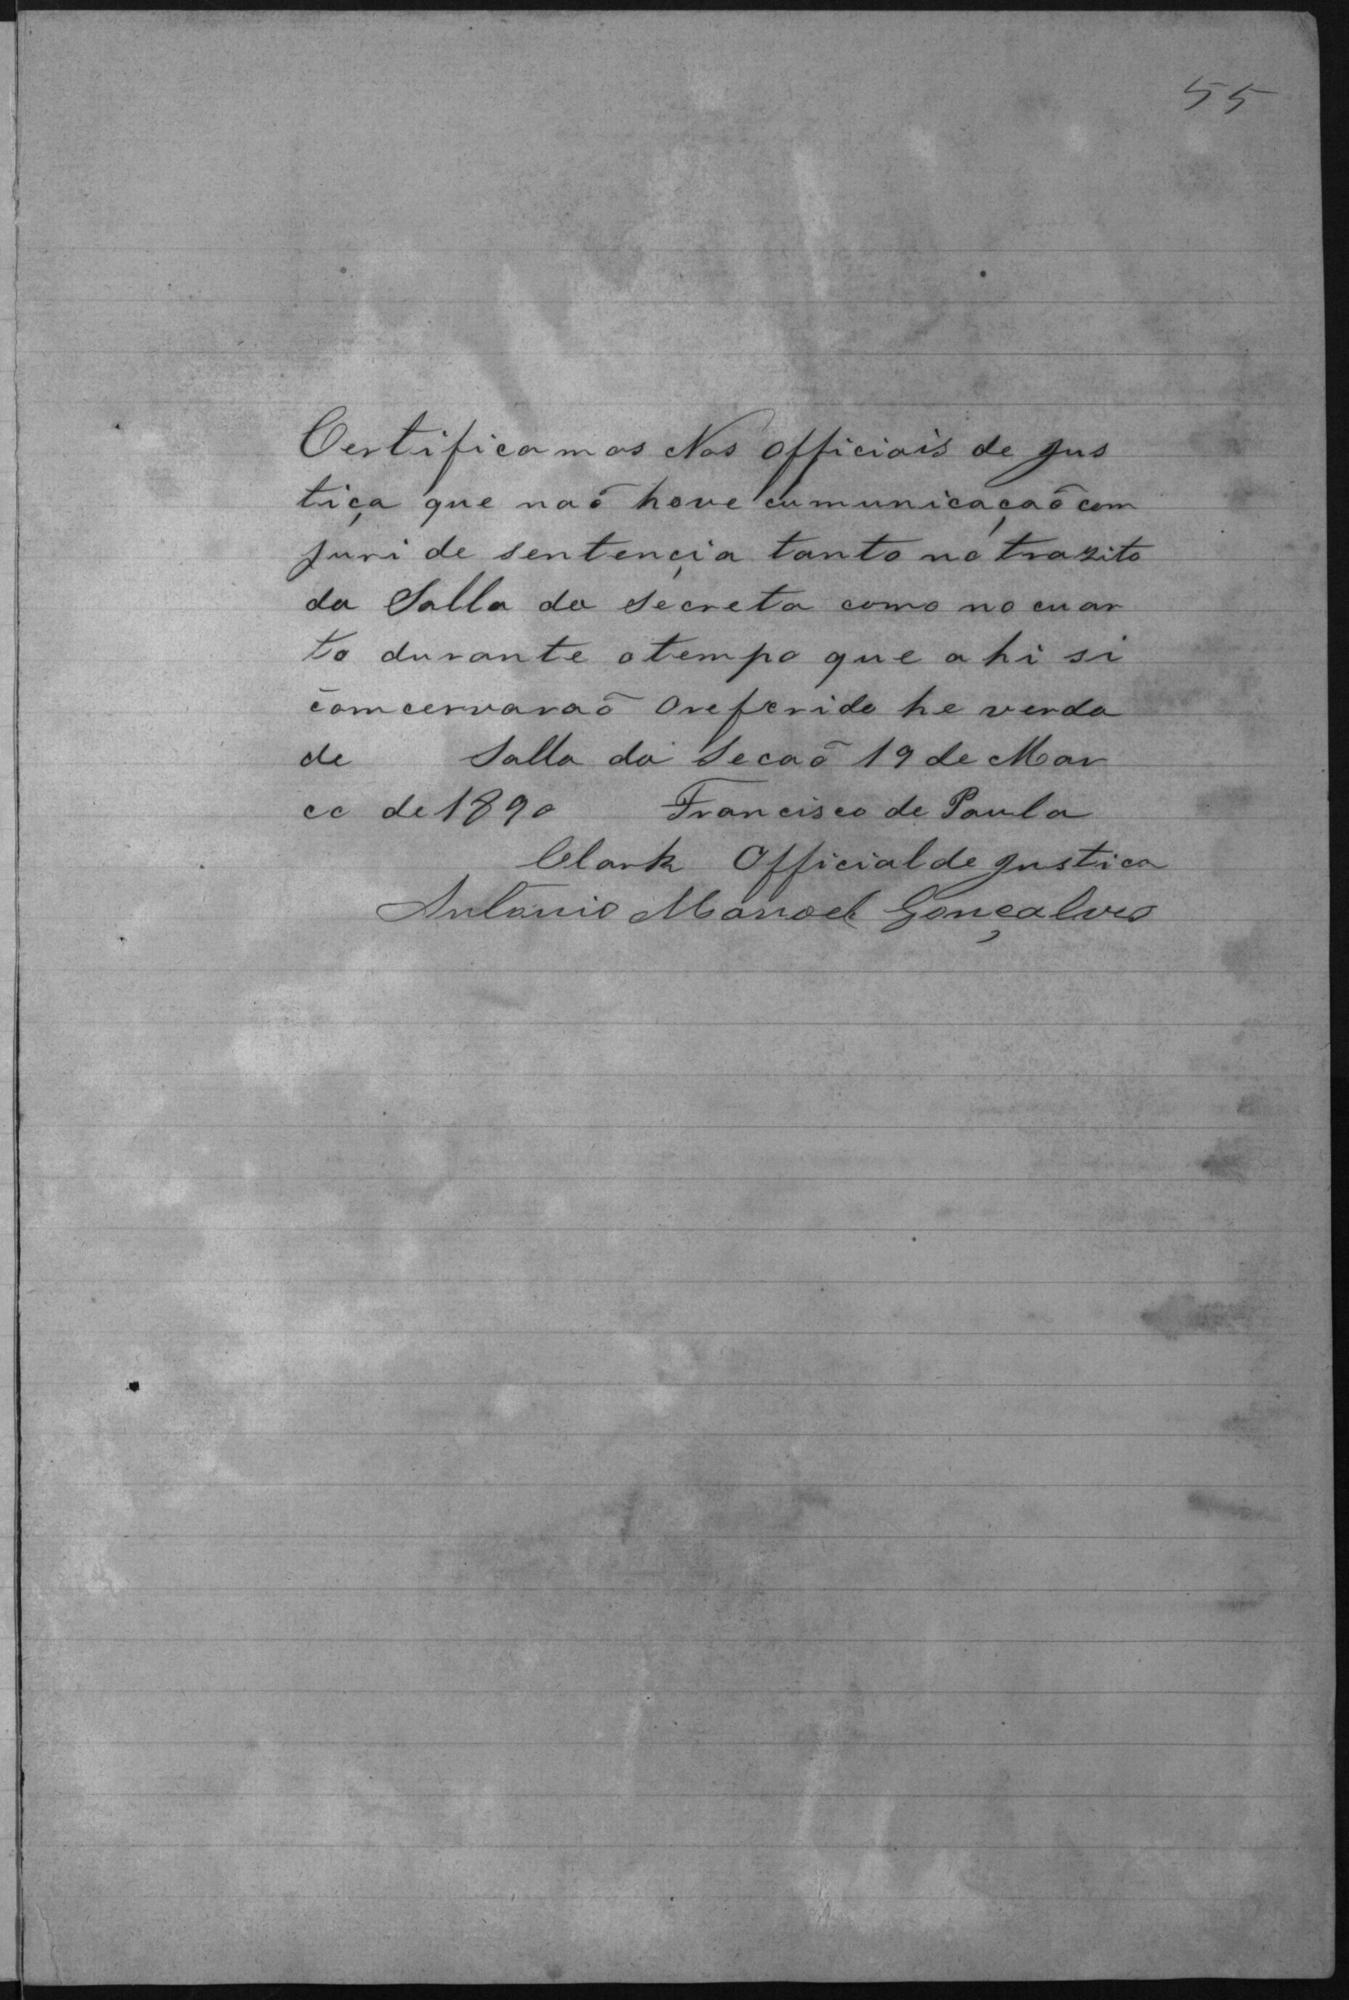 55
Certificamos Nos Officiais de jus
tiça que naõ hove cumunicaçaõ com
juri de sentencia tanto no trazito
da Salla da Secreta como no cuar
to durante o tempo que ahi si
comcervaraõ O referido he verda
de Salla da Secaõ 19 de Mar
co de 1890 Francisco de Paula
Clark Official de justica
Antonio Manoel Gonçalves